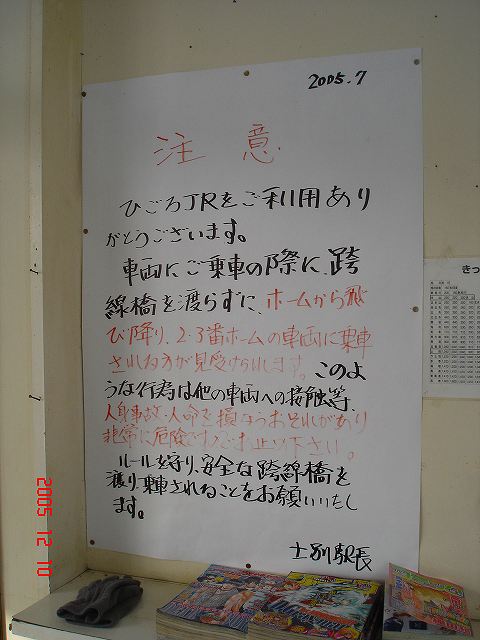 2005.7
注 意
ひごろJRをご利用あり
がとうございます。
車両にご乗車の際に、跨
線橋を渡らずに、ホームから飛
び降り、2.3番ホームの車両に乗車
される方が見受けられます。このよ
うな行為は他の車両への接触等、
人身事故、人命を損なうおそれがあり
非常に危険ですのでお止め下さい。
ルールを守り、安全な跨線橋を
渡り、乗車されることをお願いいたし
ます。
士別駅長
きっ
2005 12 10